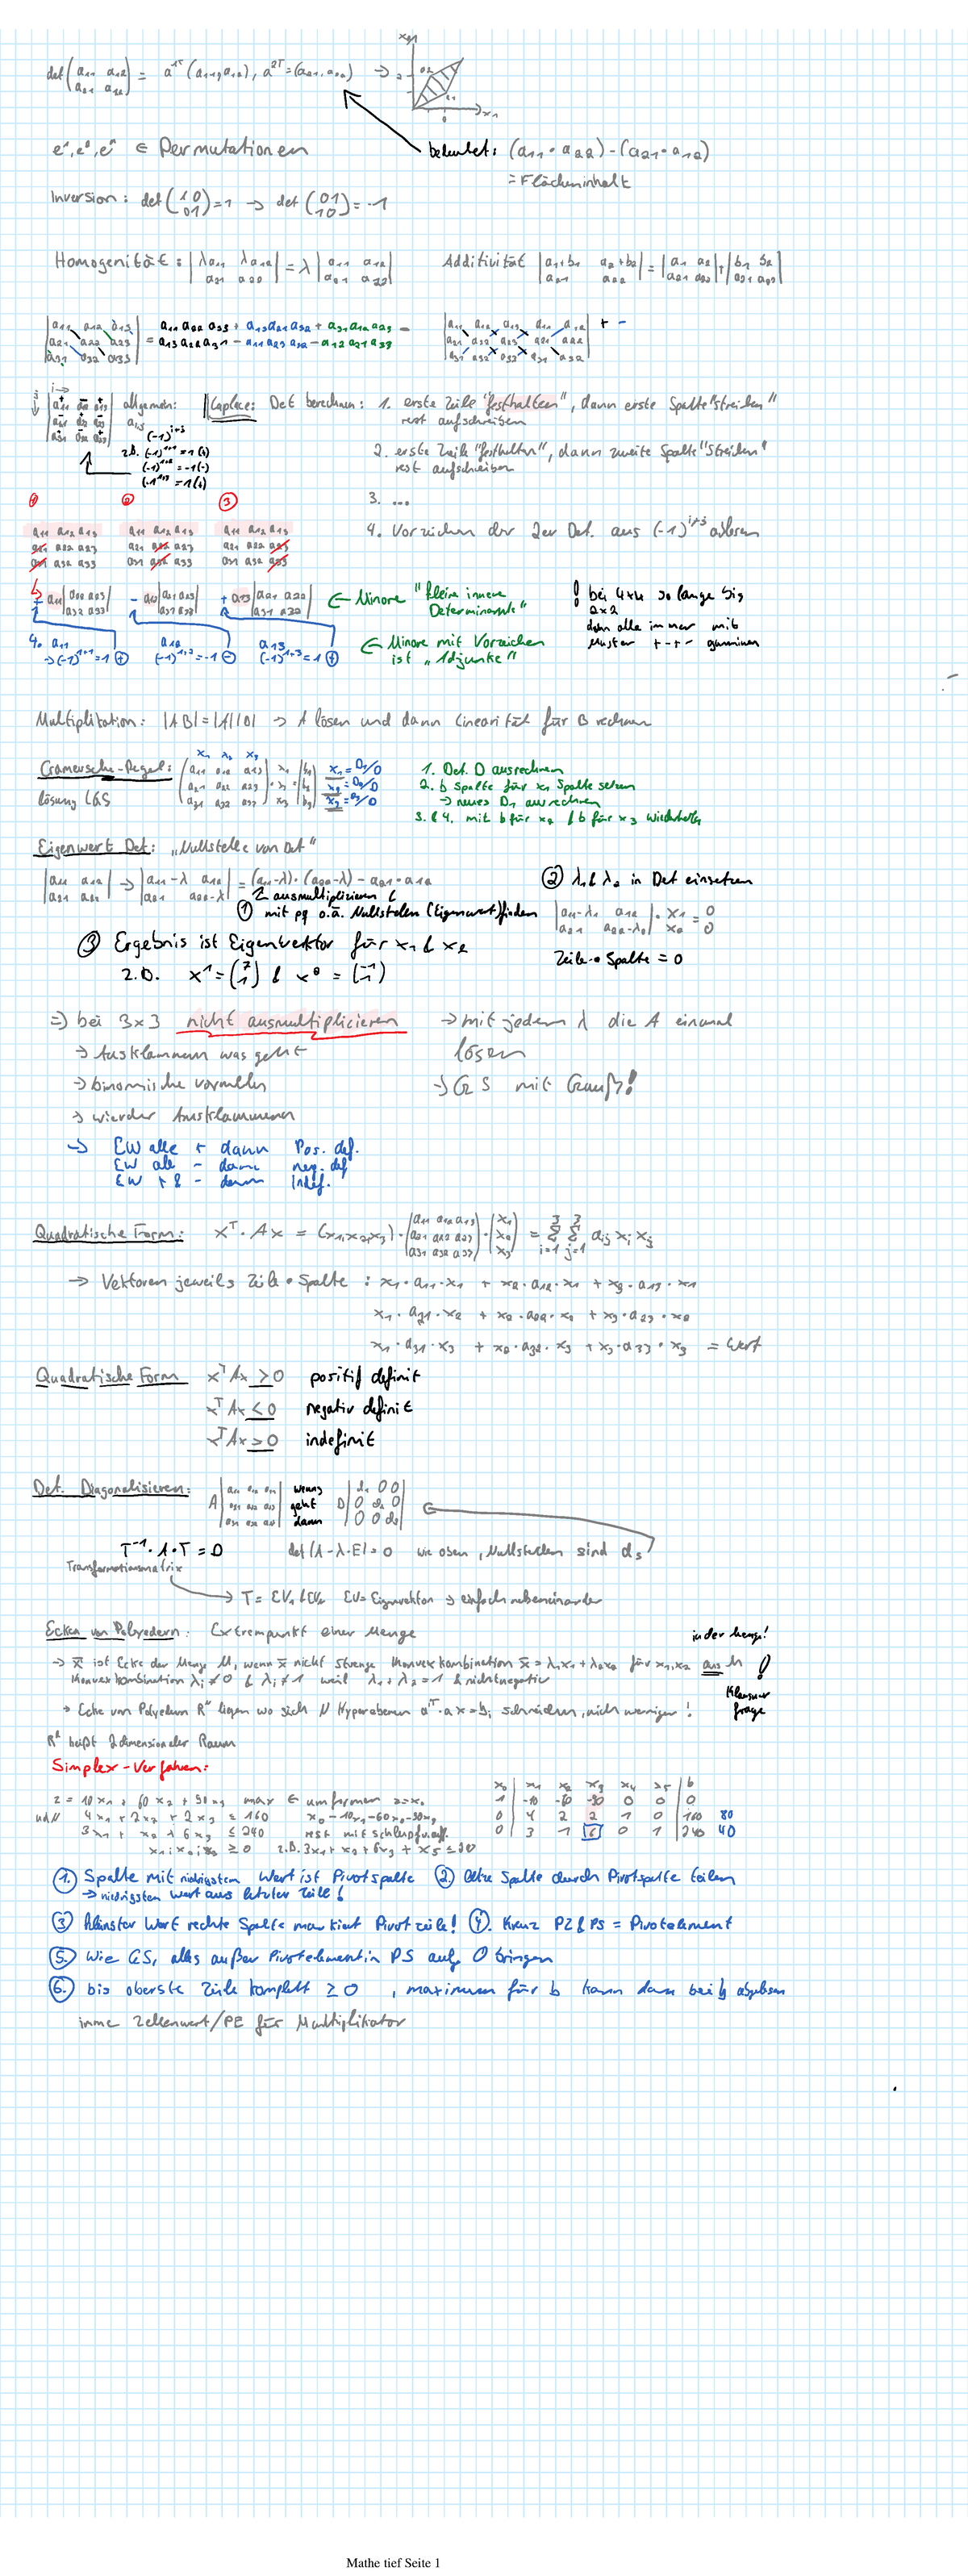 det(a11 a12 = a^1T (a11, a12), a^2T = (a21, a22) →
a21 a22)
x2
x1
e¹, e², eⁿ ∈ Permutationen
bedeutet: (a11 · a22) - (a21 · a12)
= Flächeninhalt
Inversion: det(1 0 / 0 1) = 1 → det(0 1 / 1 0) = -1
Homogenität: |λa11 λa12 / a21 a22| = λ |a11 a12 / a21 a22|
Additivität |a1+b1 a2+b2 / a21 a22| = |a1 a2 / a21 a22| + |b1 b2 / a21 a22|
|a11 a12 a13| = a11 a22 a33 + a13 a21 a32 + a31 a12 a23 -
|a21 a22 a23| = a13 a22 a31 - a11 a23 a32 - a12 a21 a33
|a31 a32 a33|
+ -
allgemein:
ai,j (-1)^i+j
z.B. (-1)^1+1 = 1 (+)
(-1)^1+2 = -1 (-)
(-1)^1+3 = 1 (+)
Laplace: Det berechnen: 1. erste Zeile "festhalten", dann erste Spalte "streichen"
rest aufschreiben
2. erste Zeile "festhalten", dann zweite Spalte "streichen"
rest aufschreiben
3. ...
4. Vorzeichen der 2er Det. aus (-1)^i+j ablesen
① ② ③
a11 a12 a13 a11 a12 a13 a11 a12 a13
a21 a22 a23 a21 a22 a23 a21 a22 a23
a31 a32 a33 a31 a32 a33 a31 a32 a33
+ a11 |a22 a23 / a32 a33| - a12 |a21 a23 / a31 a33| + a13 |a21 a22 / a31 a32|
← Minore "kleine innere
Determinante"
! bei 4x4 so lange bis
2x2
dann alle immer mit
Muster + - + -
4. a11 a12 a13
→ (-1)^1+1 = 1 (+) (-1)^1+2 = -1 (-) (-1)^1+3 = 1 (+)
← Minore mit Vorzeichen
ist „Adjunkte"
Multiplikation: |AB| = |A||B| → A lösen und dann Linearität für B rechnen
x1 x2 x3
Cramersche-Regel: |a11 a12 a13| x1 |b1| x1 = D1/D
lösung LGS |a21 a22 a23| · x2 = |b2| x2 = D2/D
|a31 a32 a33| x3 |b3| x3 = D3/D
1. Det. D ausrechnen
2. b Spalte für x1 Spalte setzen
→ neues D1 ausrechnen
3. & 4. mit b für x2 & b für x3 wiederholen
Eigenwert Det: „Nullstelle von Det"
|a11 a12 / a21 a22| → |a11-λ a12 / a21 a22-λ| = (a11-λ)·(a22-λ) - a21 · a12
ausmultiplizieren &
① mit pq o.ä. Nullstellen (Eigenwert) finden
② λ1 & λ2 in Det einsetzen
|a11-λ1 a12 / a21 a22-λ2| · x1 / x2 = 0 / 0
Zeile · Spalte = 0
③ Ergebnis ist Eigenvektor für x1 & x2
z.B. x¹ = (7 / 1) & x² = (-1 / 1)
⇒ bei 3x3 nicht ausmultiplicieren
→ Ausklammern was geht
→ binomische vormeln
→ wierder Ausklammern
→ mit jedem λ die A einmal
lösen
→ GS mit Gauß!
→ EW alle + dann Pos. def.
EW alle - dann neg. def
EW + & - dann Indef.
Quadratische Form: x^T · Ax = (x1, x2, x3) · |a11 a12 a13 / a21 a22 a23 / a31 a32 a33| · |x1 / x2 / x3| = Σ i=1 3 Σ j=1 3 aij xi xj
→ Vektoren jeweils Zeile · Spalte : x1 · a11 · x1 + x2 · a12 · x1 + x3 · a13 · x1
x1 · a21 · x2 + x2 · a22 · x2 + x3 · a23 · x2
x1 · a31 · x3 + x2 · a32 · x3 + x3 · a33 · x3 = Wert
Quadratische Form x^T Ax > 0 positif definit
x^T Ax < 0 negativ definit
x^T Ax > 0 indefinit
Det. Diagonalisieren: A |a11 a12 a13 / a21 a22 a23 / a31 a32 a33| wenns geht dann D |d1 0 0 / 0 d2 0 / 0 0 d3|
T⁻¹ · A · T = D det(A - λ·E) = 0 wie oben, Nullstellen sind ds
Transformationsmatrix
→ T = EV1 & EV2 EV = Eigenvektor → einfach nebeneinander
Ecken von Polyedern: Extrempunkt einer Menge
in der Menge!
→ x̄ ist Ecke der Menge M, wenn x̄ nicht strenge Konvexkombination x̄ = λ1x1 + λ2x2 für x1, x2 aus M !
Konvexkombination λi ≠ 0 & λi ≠ 1 weil λ1 + λ2 = 1 & nichtnegativ
Klausur
frage
→ Ecke von Polyedern Rⁿ liegen wo sich N Hyperebenen a^iT · x = bi schneiden, nich weniger!
R² heißt 2dimensionaler Raum
Simplex-Verfahren:
z = 10x1 + 60x2 + 30x3 max ∈ umformen z = x0
udN 4x1 + 2x2 + 2x3 ≤ 160 x0 - 10x1 - 60x2 - 30x3
3x1 + x2 + 6x3 ≤ 240 rest mit schlupfv. auff.
x1; x2; x3 ≥ 0 z.B. 3x1 + x2 + 6x3 + x5 = 240
x0 x1 x2 x3 x4 x5 b
1 -10 -60 -30 0 0 0
0 4 2 2 1 0 160 80
0 3 1 6 0 1 240 40
① Spalte mit niedrigstem Wert ist Pivotspalte ② letze Spalte durch Pivotspalte teilen
→ niedrigsten Wert aus letzter Zeile!
③ kleinster Wert rechte Spalte markiert Pivotzeile! ④. Kreuz PZ & PS = Pivotelement
⑤ Wie GS, alles außer Pivotelement in PS auf 0 bringen
⑥ bis oberste Zeile komplett ≥ 0, maximum für b kann dann bei b abgelesen
imme Zellenwert/PE für Multiplikator
Mathe tief Seite 1